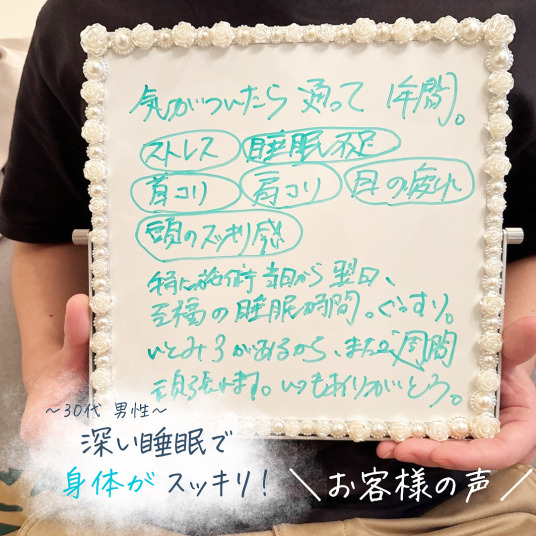 気がついたら 通って 1年間。
ストレス 睡眠不足
首コリ 肩コリ 目の疲れ
頭のスッキリ感
特に施術当日から翌日、
至福の睡眠時間。ぐっすり。
いとみ3があるから、また2週間
頑張れます。いつもありがとう。
～30代 男性～
深い睡眠で
身体が スッキリ！
＼お客様の声／